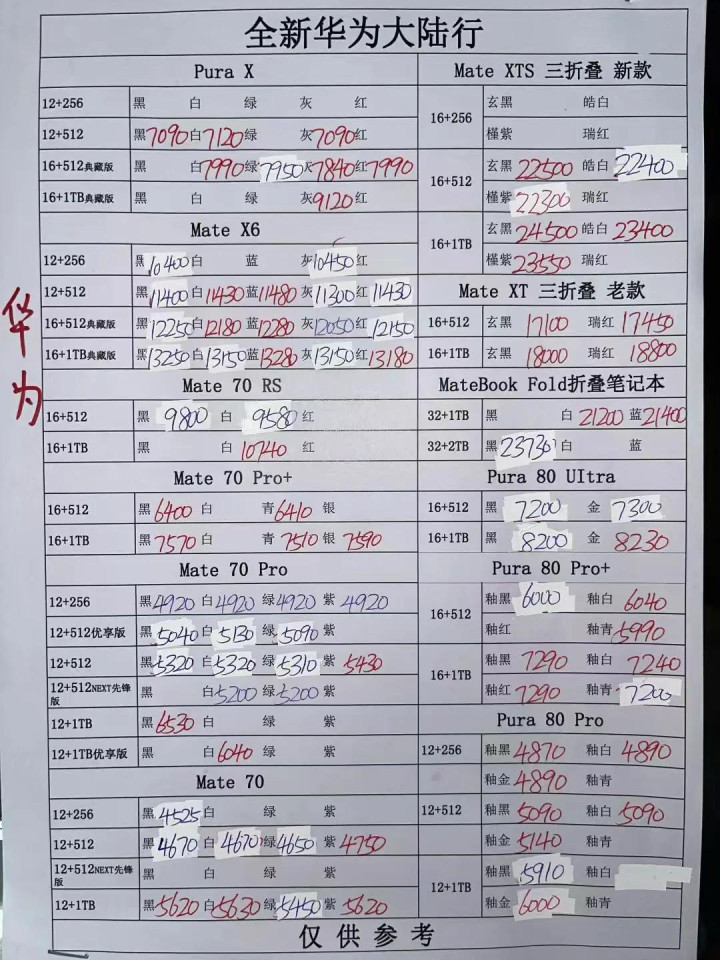 全新华为大陆行
华为
Pura X
12+256 黑 白 绿 灰 红
12+512 黑7090 白7120 绿 灰7090 红
16+512典藏版 黑 白7990 绿7950 灰7840 红7990
16+1TB典藏版 黑 白 绿 灰9120 红
Mate X6
12+256 黑10400 白 蓝 灰10450 红
12+512 黑11400 白11430 蓝11480 灰11300 红11430
16+512典藏版 黑12250 白12180 蓝12280 灰12050 红12150
16+1TB典藏版 黑13250 白13150 蓝13280 灰13150 红13180
Mate 70 RS
16+512 黑9800 白9580 红
16+1TB 黑 白10740 红
Mate 70 Pro+
16+512 黑6400 白 青6410 银
16+1TB 黑7570 白 青7510 银7590
Mate 70 Pro
12+256 黑4920 白4920 绿4920 紫4920
12+512优享版 黑5040 白5130 绿5090 紫
12+512 黑5320 白5320 绿5310 紫5430
12+512NEXT先锋版 黑 白5200 绿5200 紫
12+1TB 黑6530 白 绿 紫
12+1TB优享版 黑 白6040 绿 紫
Mate 70
12+256 黑4525 白 绿 紫
12+512 黑4670 白4670 绿4650 紫4750
12+512NEXT先锋版 黑 白 绿 紫
12+1TB 黑5620 白5630 绿5450 紫5620
Mate XTS 三折叠 新款
16+256 玄黑 皓白
槿紫 瑞红
16+512 玄黑22500 皓白22400
槿紫22300 瑞红
16+1TB 玄黑24500 皓白23400
槿紫23550 瑞红
Mate XT 三折叠 老款
16+512 玄黑17100 瑞红17450
16+1TB 玄黑18000 瑞红18800
MateBook Fold折叠笔记本
32+1TB 黑 白21200 蓝21400
32+2TB 黑23730 白 蓝
Pura 80 Ultra
16+512 黑7200 金7300
16+1TB 黑8200 金8230
Pura 80 Pro+
16+512 釉黑6000 釉白6040
釉红 釉青5990
16+1TB 釉黑7290 釉白7240
釉红7290 釉青7200
Pura 80 Pro
12+256 釉黑4870 釉白4890
釉金4890 釉青
12+512 釉黑5090 釉白5090
釉金5140 釉青
12+1TB 釉黑5910 釉白
釉金6000 釉青
仅供参考